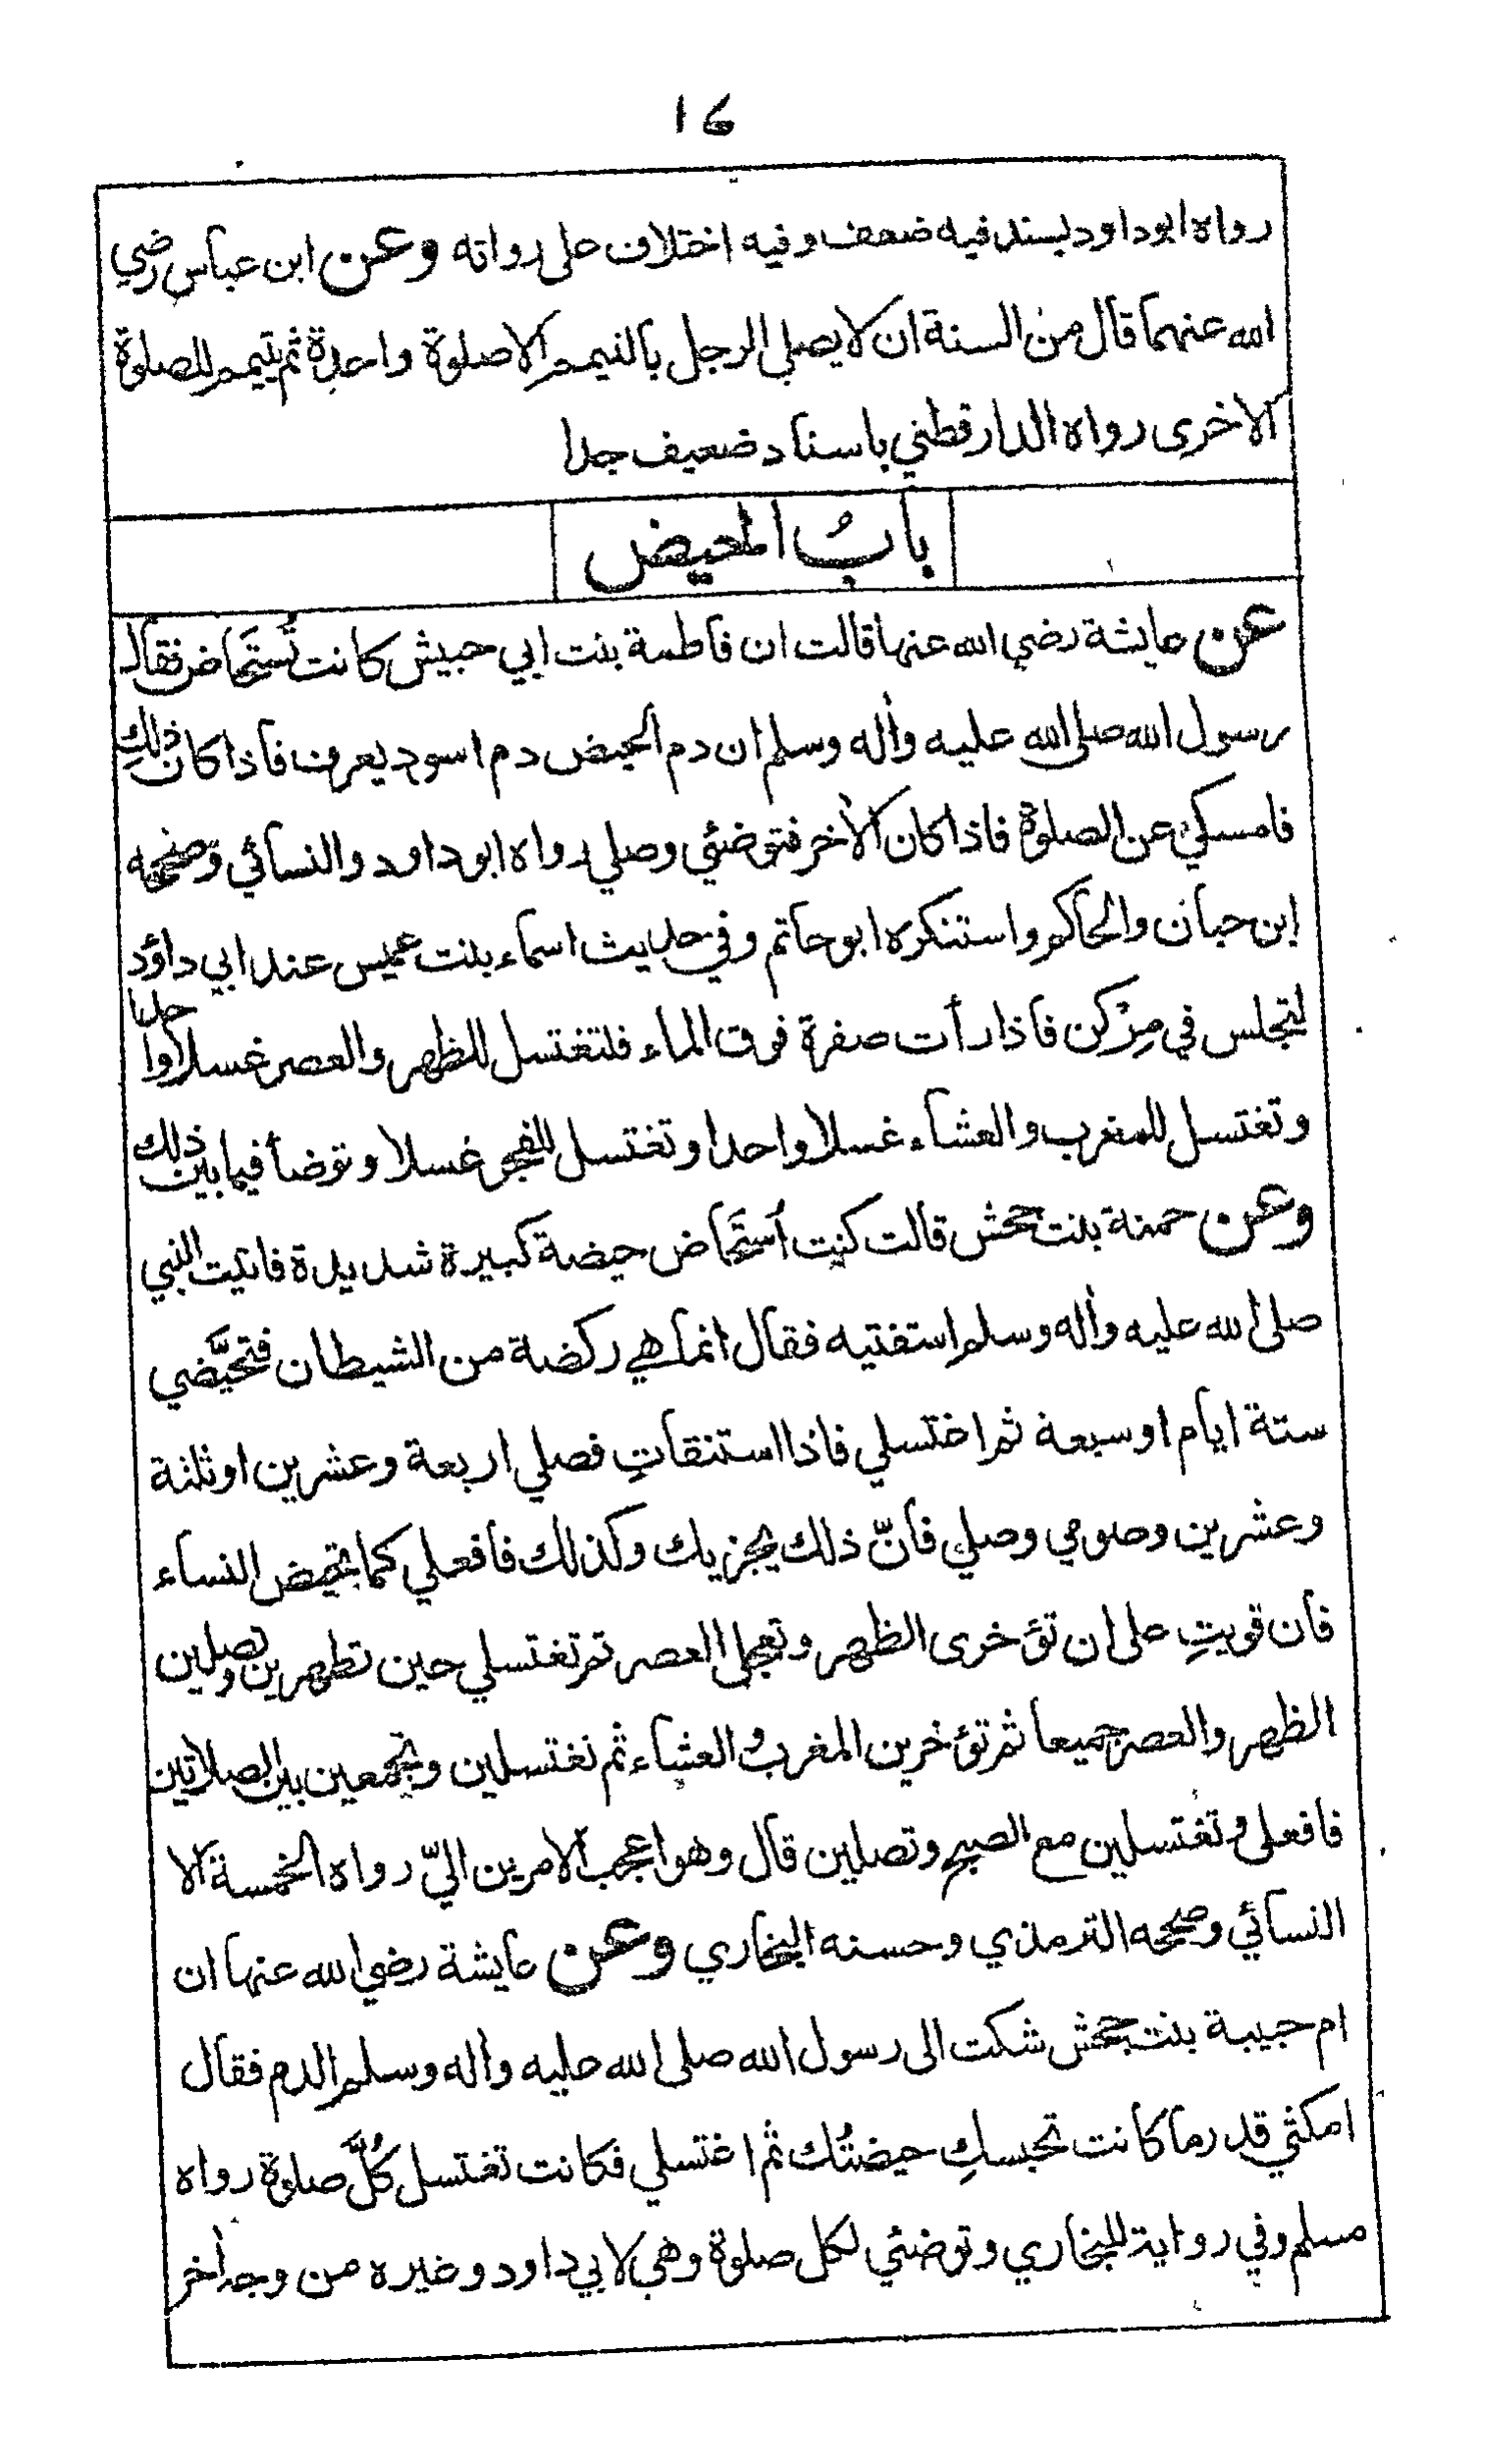 ١٦
رواه ابوداود بسند فيه ضعف وفيه اختلاف على رواته وعن ابن عباس رضي
الله عنهما قال من السنة ان لا يصلي الرجل بالتيمم الا صلوة واحدة ثم يتيمم للصلوة
الاخرى رواه الدارقطني باسناد ضعيف جدا
بابُ الحيض
عن عايشة رضي الله عنها قالت ان فاطمة بنت ابي حبيش كانت تُستَحاض فقال
رسول الله صلى الله عليه وأله وسلم ان دم الحيض دم اسود يعرف فاذا كان ذلكِ
فامسكي عن الصلوة فاذا كان الأخر فتوضئي وصلي رواه ابو داود والنسائي وصححه
إبن حبان والحاكم واستنكره ابو حاتم وفي حديث اسماء بنت عميس عند ابي داؤد
لتجلس في مِرْكن فاذا رأت صفرة فوق الماء فلتغتسل للظهر والعصر غسلا واحدا
وتغتسل للمغرب والعشاء غسلا واحدا وتغتسل للفجر غسلا وتوضأ فيما بين ذلك
وعن حمنة بنت جحش قالت كنت أستَحاض حيضة كبيرة شديدة فاتيت النبي
صلى الله عليه وأله وسلم استفتيه فقال انما هي ركضة من الشيطان فتحيَّضي
ستة ايام او سبعة ثم اغتسلي فاذا استنقاتِ فصلي اربعة وعشرين او ثلثة
وعشرين وصومي وصلي فانّ ذلك يجزيك وكذلك فافعلي كما تحيض النساء
فان قويتِ على ان تؤخرى الظهر وتعجلى العصر ثم تغتسلي حين تطهرين وتصلين
الظهر والعصر جميعا ثم تؤخرين المغرب والعشاء ثم تغتسلين وتجمعين بين الصلاتين
فافعلى وتغتسلين مع الصبح وتصلين قال وهو اعجب الامرين اليّ رواه الخمسة الا
النسائي وصححه الترمذي وحسنه البخاري وعن عايشة رضي الله عنها ان
ام حبيبة بنت جحش شكت الى رسول الله صلى الله عليه واله وسلم الدم فقال
امكثي قدر ما كانت تحبسكِ حيضتُك ثم اغتسلي فكانت تغتسل كُلَّ صلوة رواه
مسلم وفي رواية للبخاري وتوضئي لكل صلوة وهي لابي داود وغيره من وجه أخر